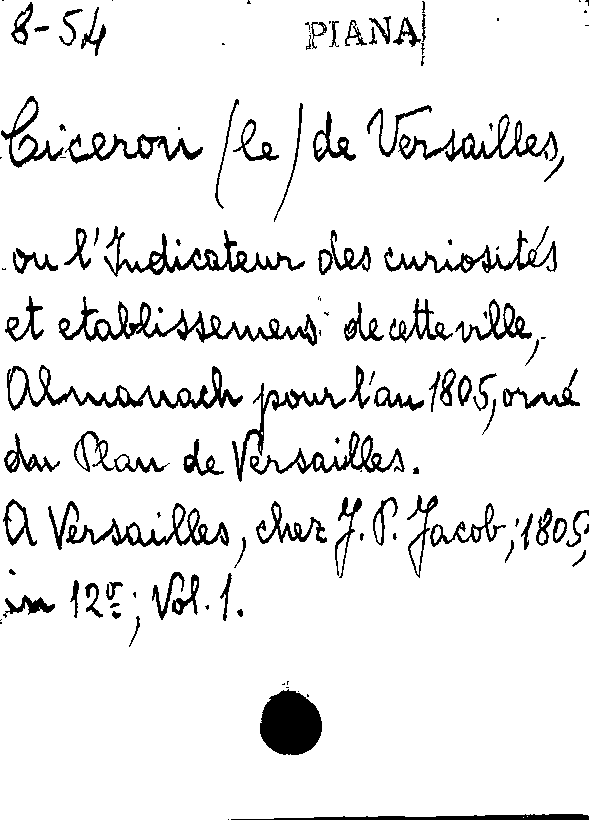 8-54 PIANA
Ciceron (le) de Versailles,
ou l'Indicateur des curiosités
et etablissemens de cette ville,
Almanach pour l'an 1805, orné
du Plan de Versailles.
A Versailles, chez J. P. Jacob; 1805,
in 12º; Vol. 1.